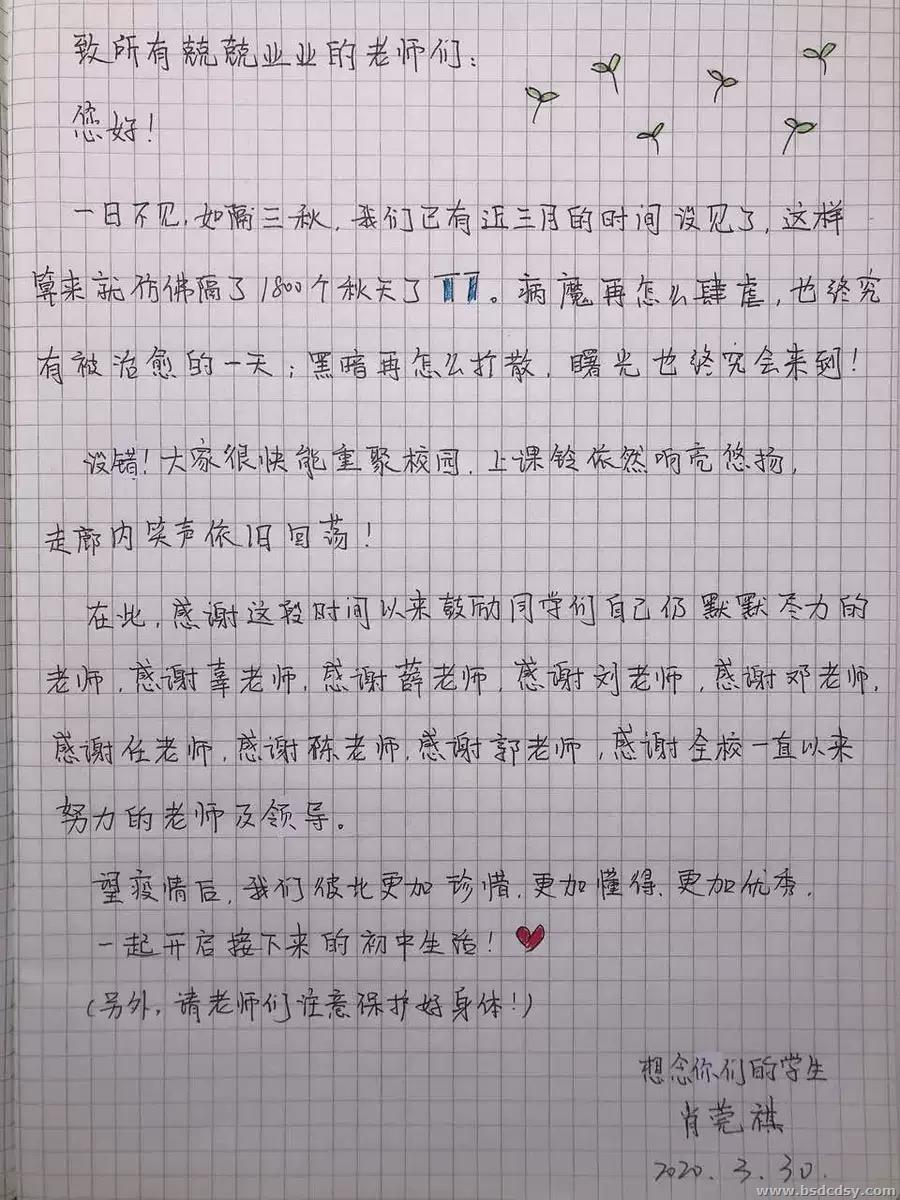 致所有兢兢业业的老师们：
您好！
一日不见，如隔三秋，我们已有近三月的时间没见了，这样
算来就仿佛隔了1800个秋天了TT。病魔再怎么肆虐，也终究
有被治愈的一天；黑暗再怎么扩散，曙光也终究会来到！
没错！大家很快能重聚校园，上课铃依然响亮悠扬，
走廊内笑声依旧回荡！
在此，感谢这段时间以来鼓励同学们自己仍默默尽力的
老师，感谢辜老师，感谢薛老师，感谢刘老师，感谢邓老师，
感谢任老师，感谢陈老师，感谢郭老师，感谢全校一直以来
努力的老师及领导。
望疫情后，我们彼此更加珍惜，更加懂得，更加优秀，
一起开启接下来的初中生活！
（另外，请老师们注意保护好身体！）
想念你们的学生
肖莞祺
2020.3.30.
www.bsdcdsy.com